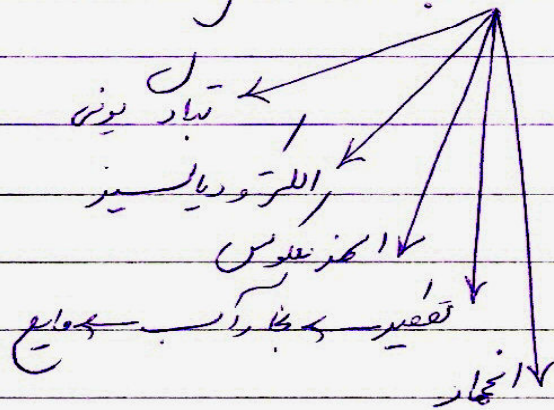 تبادل یونی
الکترودیالسیز
اسمز معکوس
تقطیر ← بخار آب ← مایع
انجماد